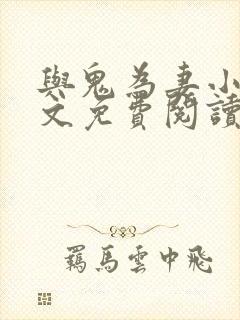 與鬼為妻小
文免費閱讀
羈馬雲中飛